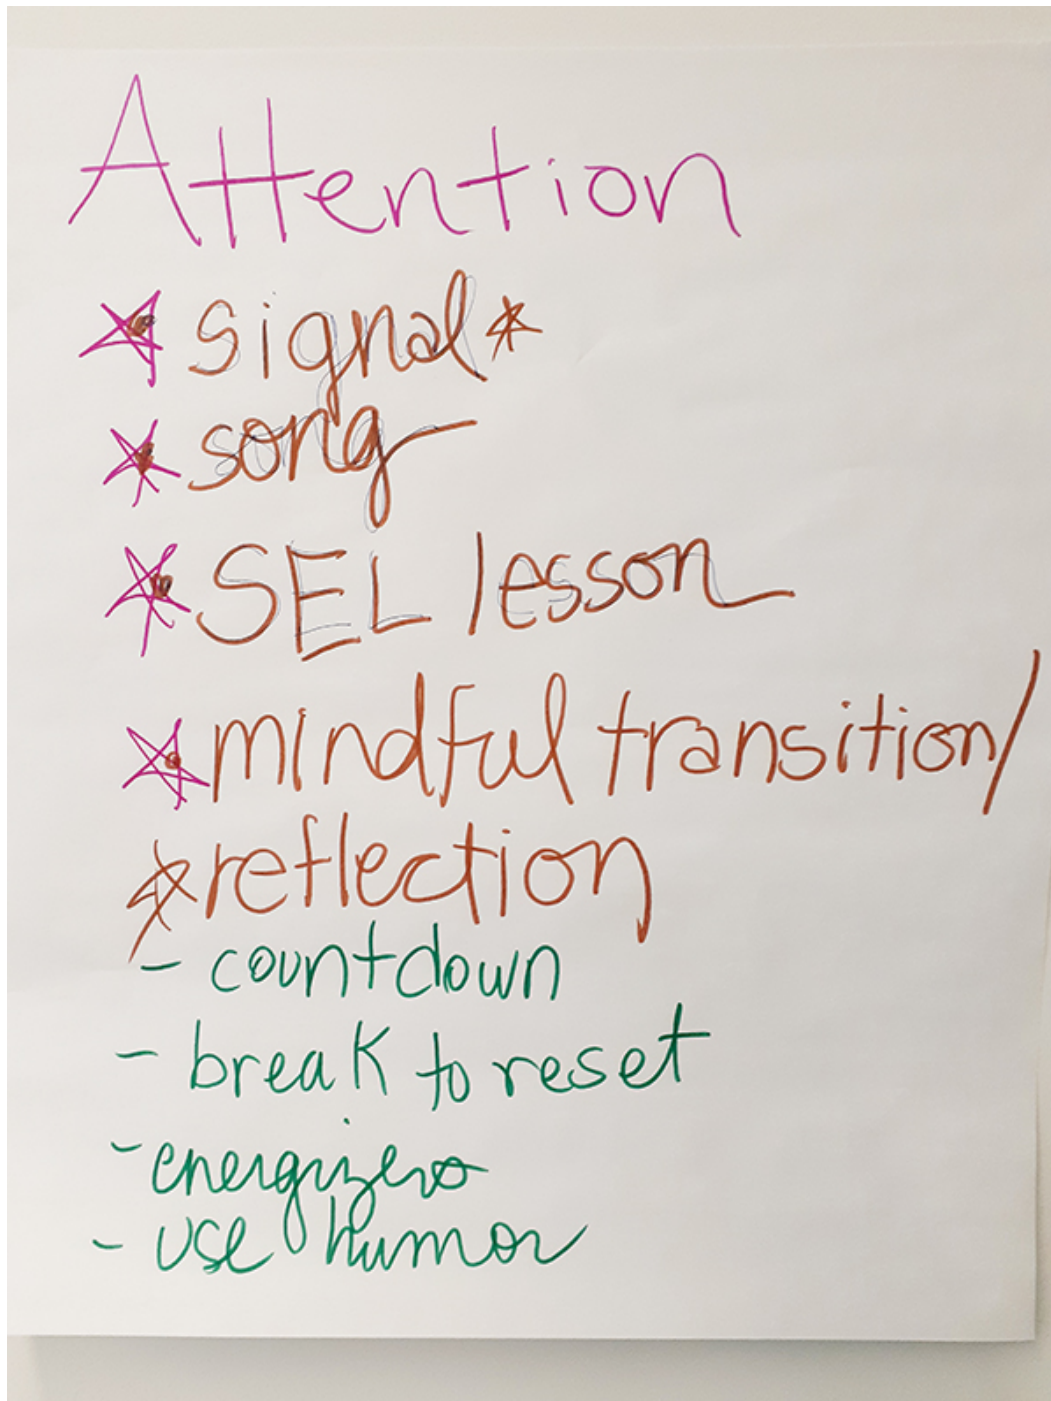 Attention
* signal *
* song
* SEL lesson
* mindful transition/
* reflection
- countdown
- break to reset
- energizers
- use humor